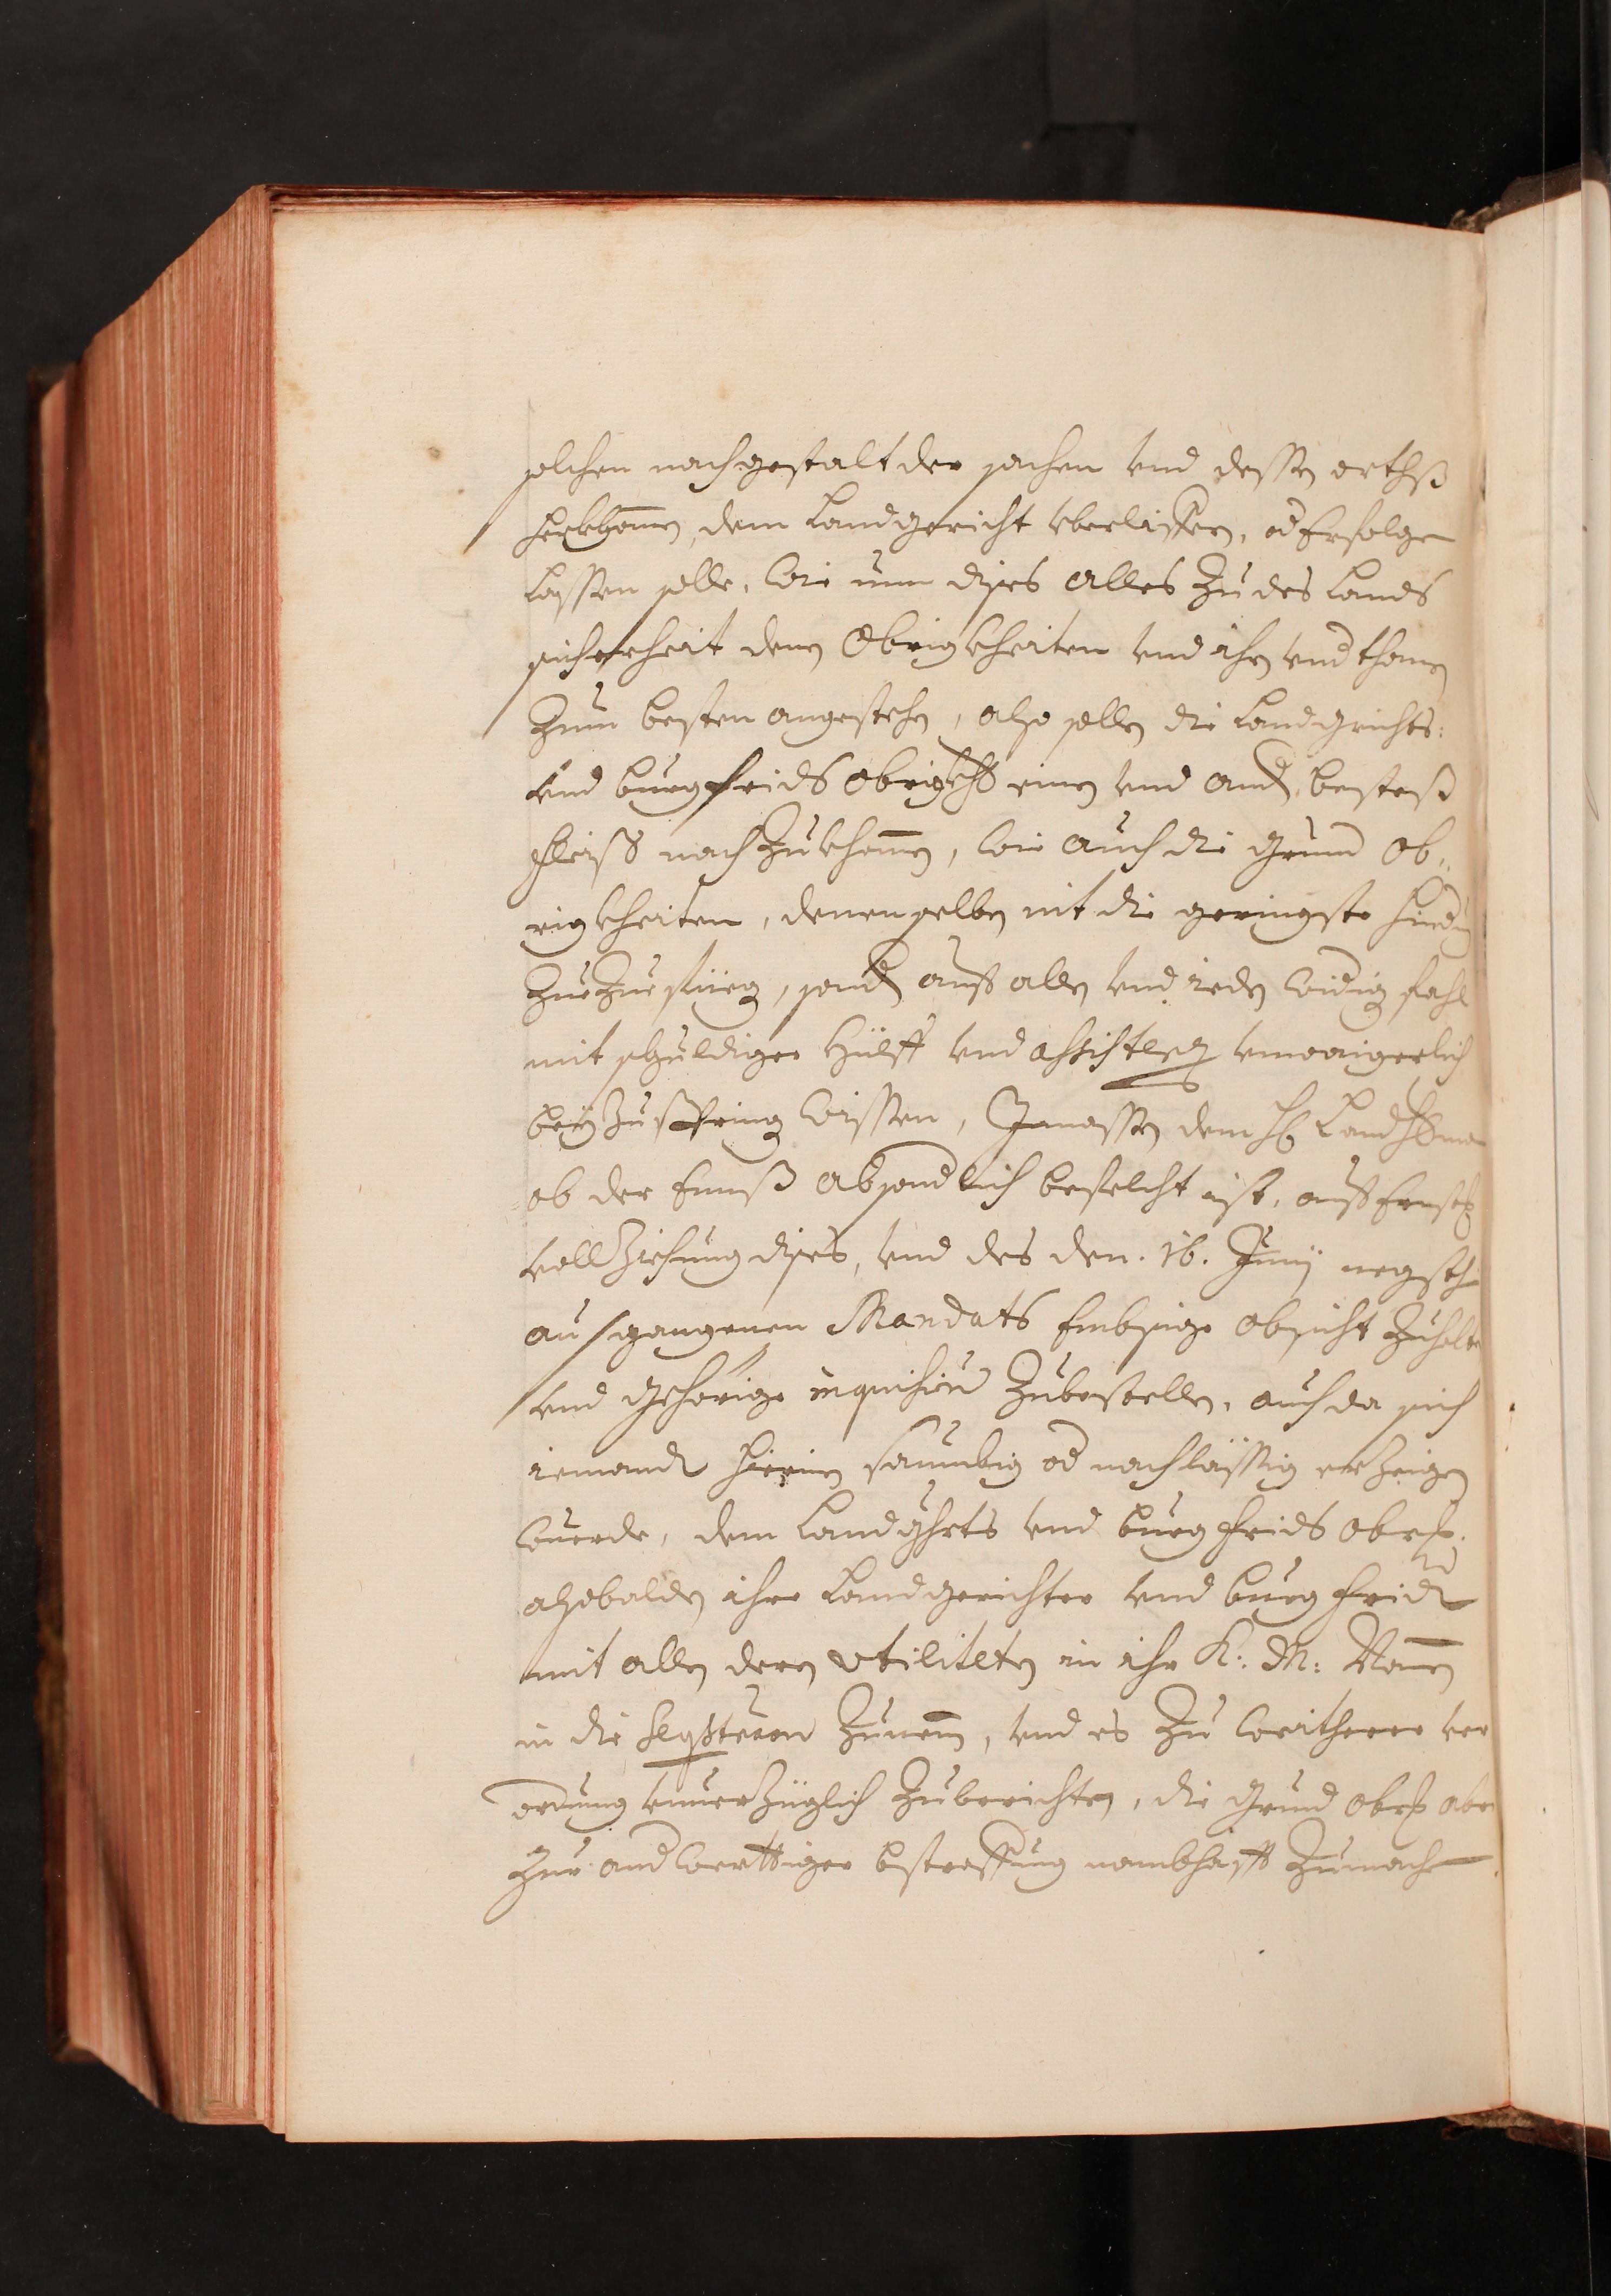 solchen nach gestalt der sachen vnd dessen orthß
herkhomen, dem Landgericht vberlisern, od Erfolgen
Lassen solle, Wie nun dises alles zu des Lands
sicherheit denen Obrigkheiten vnd ihn vnd thanen
zum besten angesehen, also sollen die Landgerichts:
vnd burgfrids obrigkh einen vnd and, bestes
fleiß nachzukhomen, wie auch die Grund Ob„
rigkheiten, denenselben nit die geringste hind
zuezuefüeg, sond auf allen vnd ieden widrig fahl
mit schuldiger Hülff vnd assistenz vnwaigerlich
beyzuspring wissen, Inmassen dem H Landshbtman
ob der Ennß absonderlich befelcht ist, auf
vollziehung dises, vnd des den. 16. Junij negsth
ausgangenen Mandats Embsige obsicht zuhalten
vnd gehörige inquision zubestellen, auch da sich
iemandt hierinen saumbig od nachlässig erzeigen
wurde, dem Landghrts vnd burgfrids obrk.
alsobalden ihre Landgerichter vnd burgfridt
mit allen deren vtiliteten in ihr K: M: Namen
in die sequestration zunemen, vnd es zu weitherer ver
ordnung vnuerzüglich zuberichten, die Grund obrk aber
zur andwerttiger bestraffung nambhafft zumachen